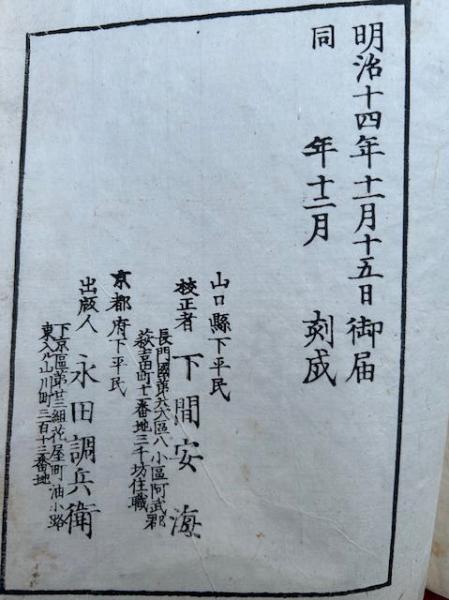 明治十四年十一月十五日御届
同　年十二月　刻成
山口縣下平民
校正者　下間安海
長門國第廿大區八小區阿武郡
萩吉田町十一番地三千坊住職
京都府下平民
出版人　永田調兵衛
下京區第廿三組花屋町油小路
東入ル山川町三百十三番地